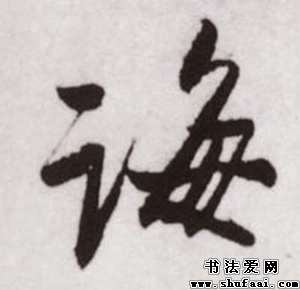 诲
书法爱网
www.shufaai.com